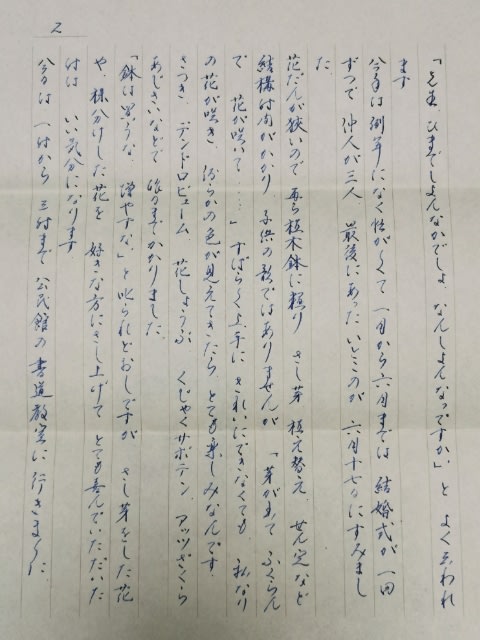 2
「先生、ひまでしよんなかでしょ、なんしよんなっですか」と よく云われ
ます
今年は例年になく忙がしくて 一月から六月までは 結婚式が 一回
ずつで 仲人が三人 最後にあったいとこのが 六月十七日にすみまし
た
花だんが狭いので 専ら植木鉢に頼り さし芽 植え替え せん定など
結構時間がかかり 子供の歌ではありませんが 「芽が出て ふくらん
で 花が咲いて……」 すばらしく上手に きれいにできなくても 私なり
の花が咲き、 何らかの色が見えてきたら とても楽しみなんです
さつき、デンドロビューム、花しょうぶ くじゃくサボテン、アッツざくら
あじさいなどで 始まりました、
「鉢は買うな 増やすな」と叱られどおしですが さし芽をした花
や、株分けした花を 好きな方にさし上げて とても喜んでいただいた
時は いい気分になります
今日は 一時から 三時まで 公民館の書道教室に行きました